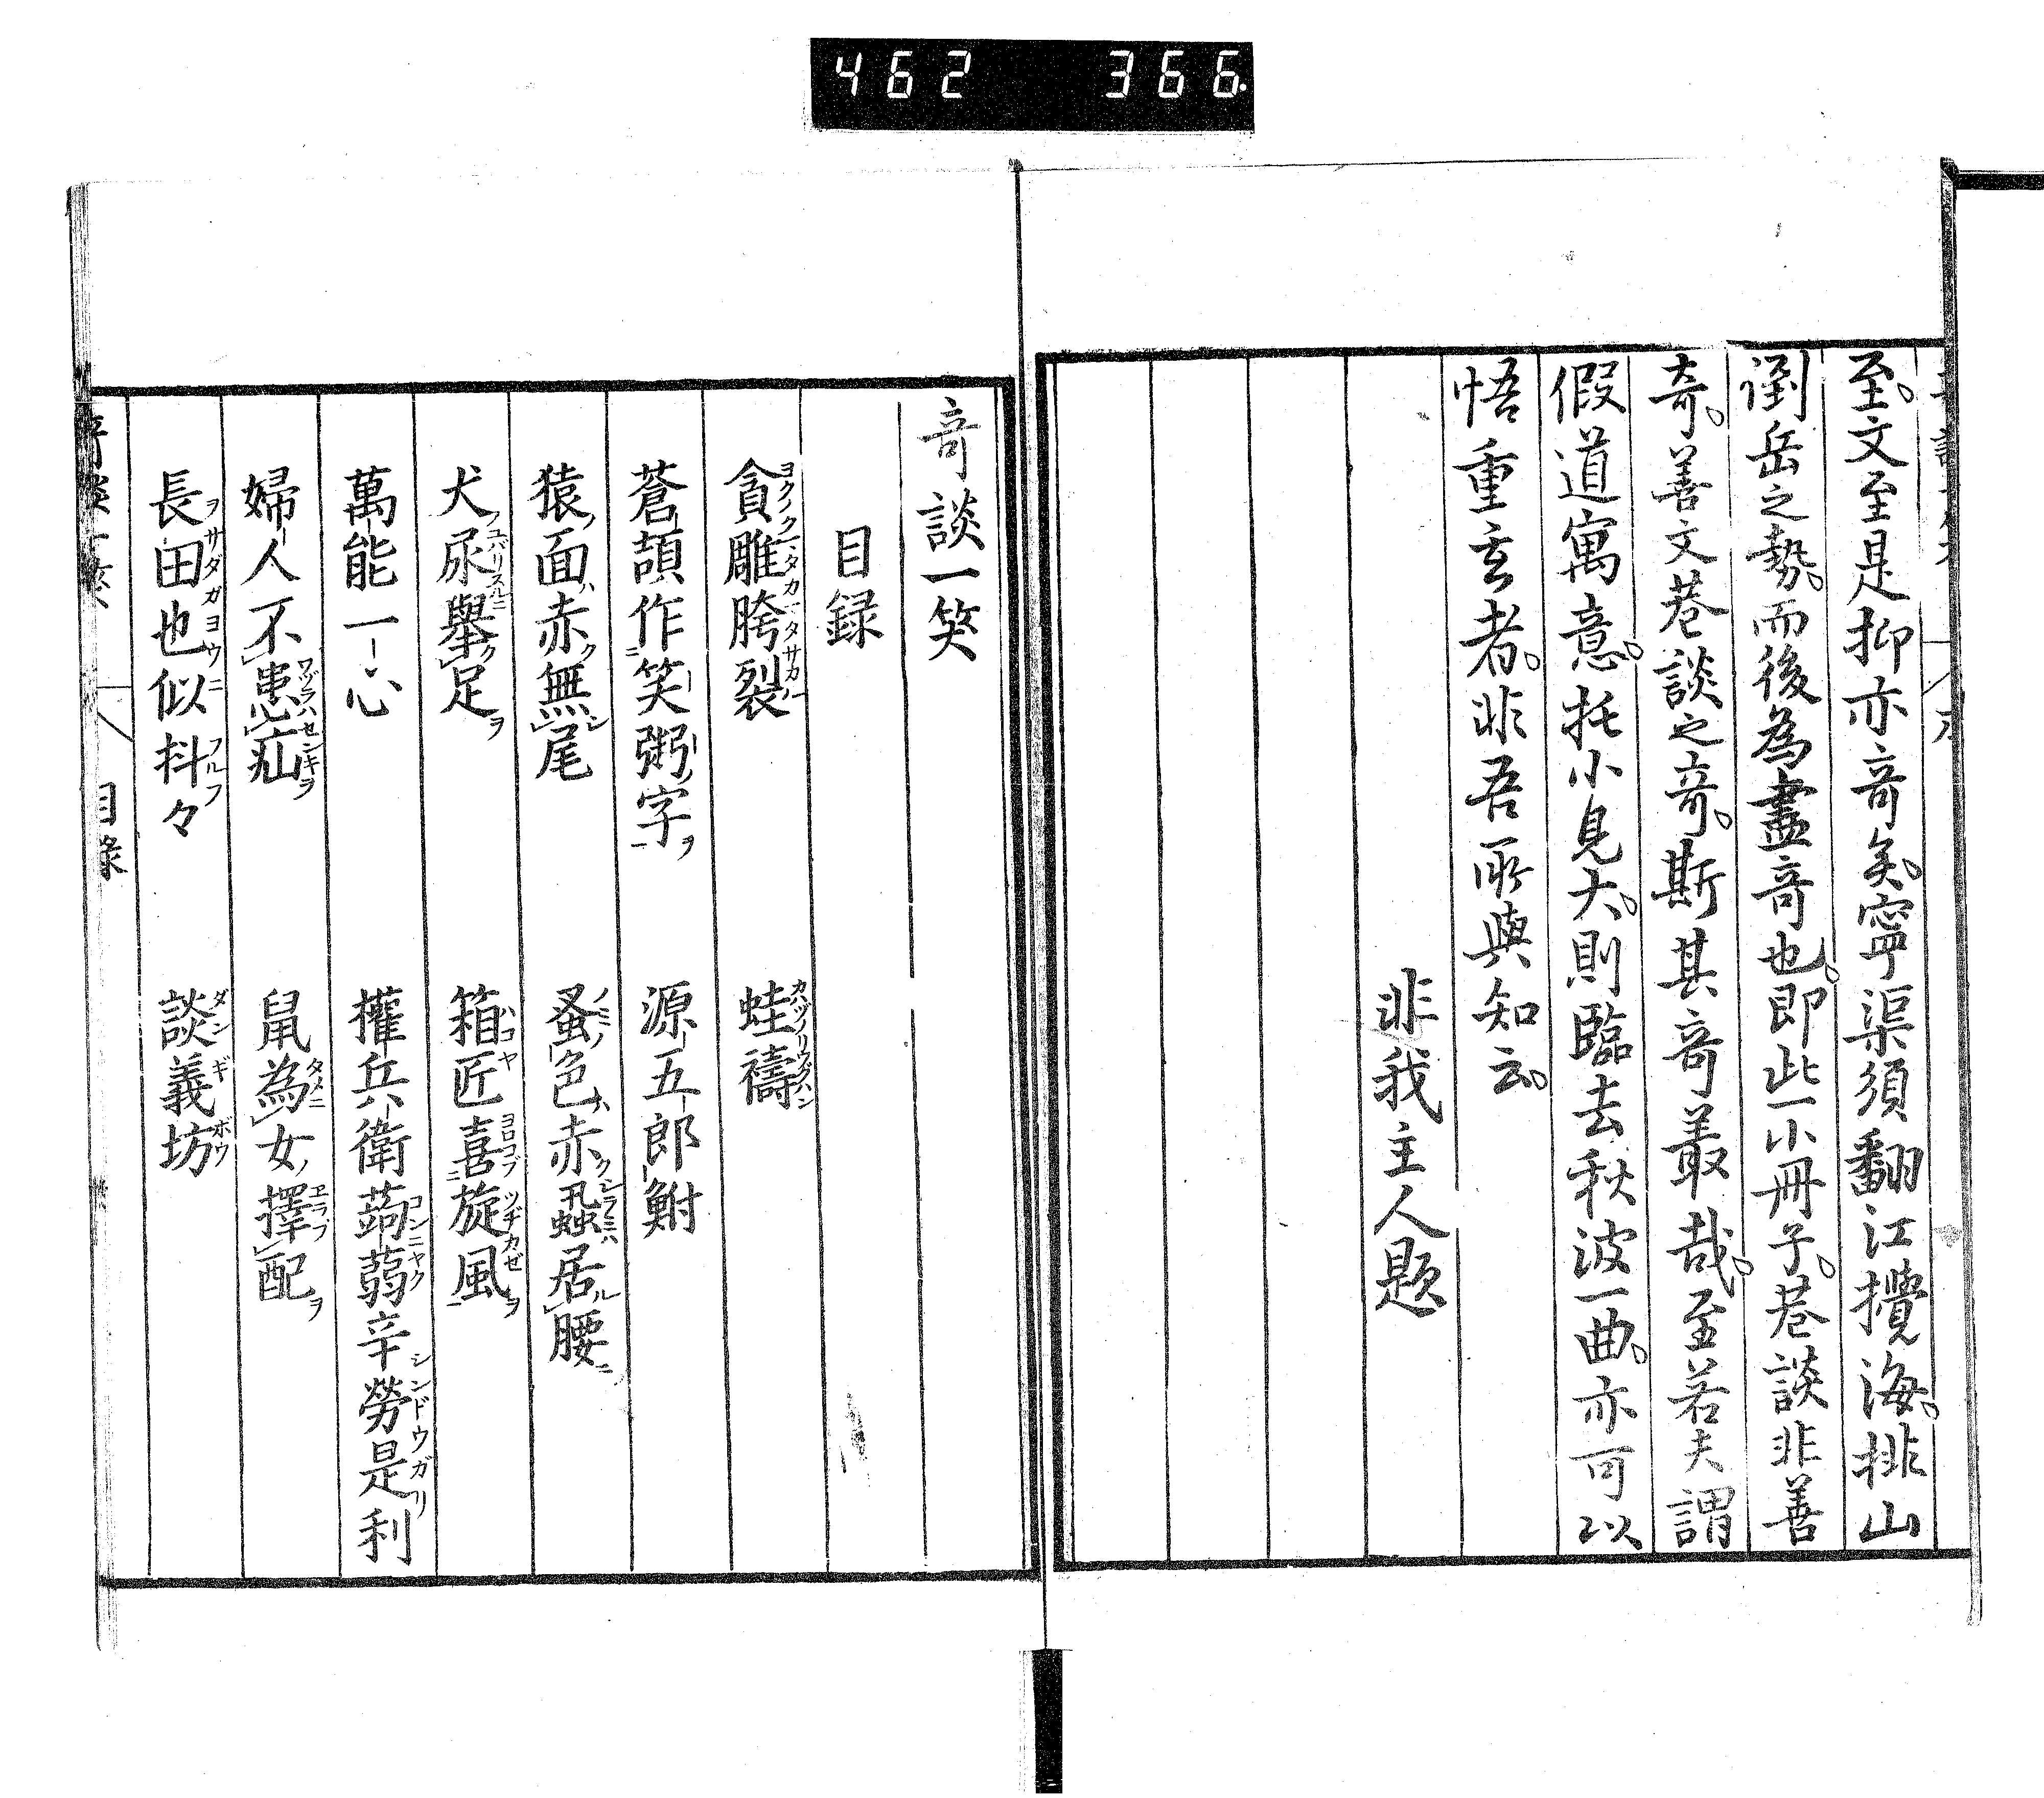 462 366
至。文至是抑亦竒矣。寧渠須翻江攪海。排山
倒岳之勢。而後為盡竒也。即此一小冊子。巷談非善
奇。善文巷談之竒。斯其竒叢哉。至若夫謂
假道寓意。托小見大。則臨去秋波一曲。亦可以
悟重玄者。非吾所與知云。
非我主人題
竒談一笑
目録
貪雕胯裂 蛙禱
蒼頡作笑粥字 源五郎鮒
猿面赤無尾 蚤色赤虱居腰
犬尿擧足 箱匠喜旋風
萬能一心 權兵衛蒟蒻辛勞是利
婦人不患疝 鼠為女擇配
長田也似抖々 談義坊
目録